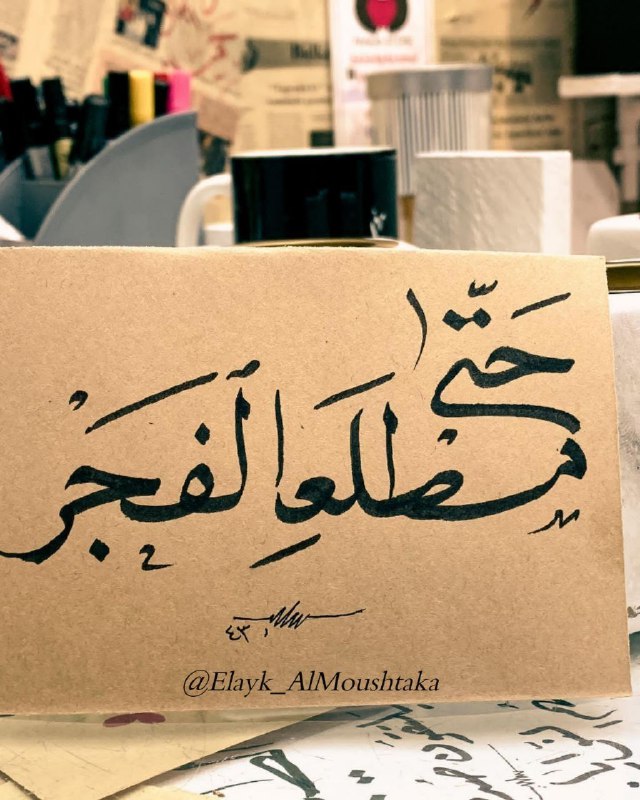 حَتَّى
مَطْلَعِ الْفَجْرِ
@Elayk_AlMoushtaka